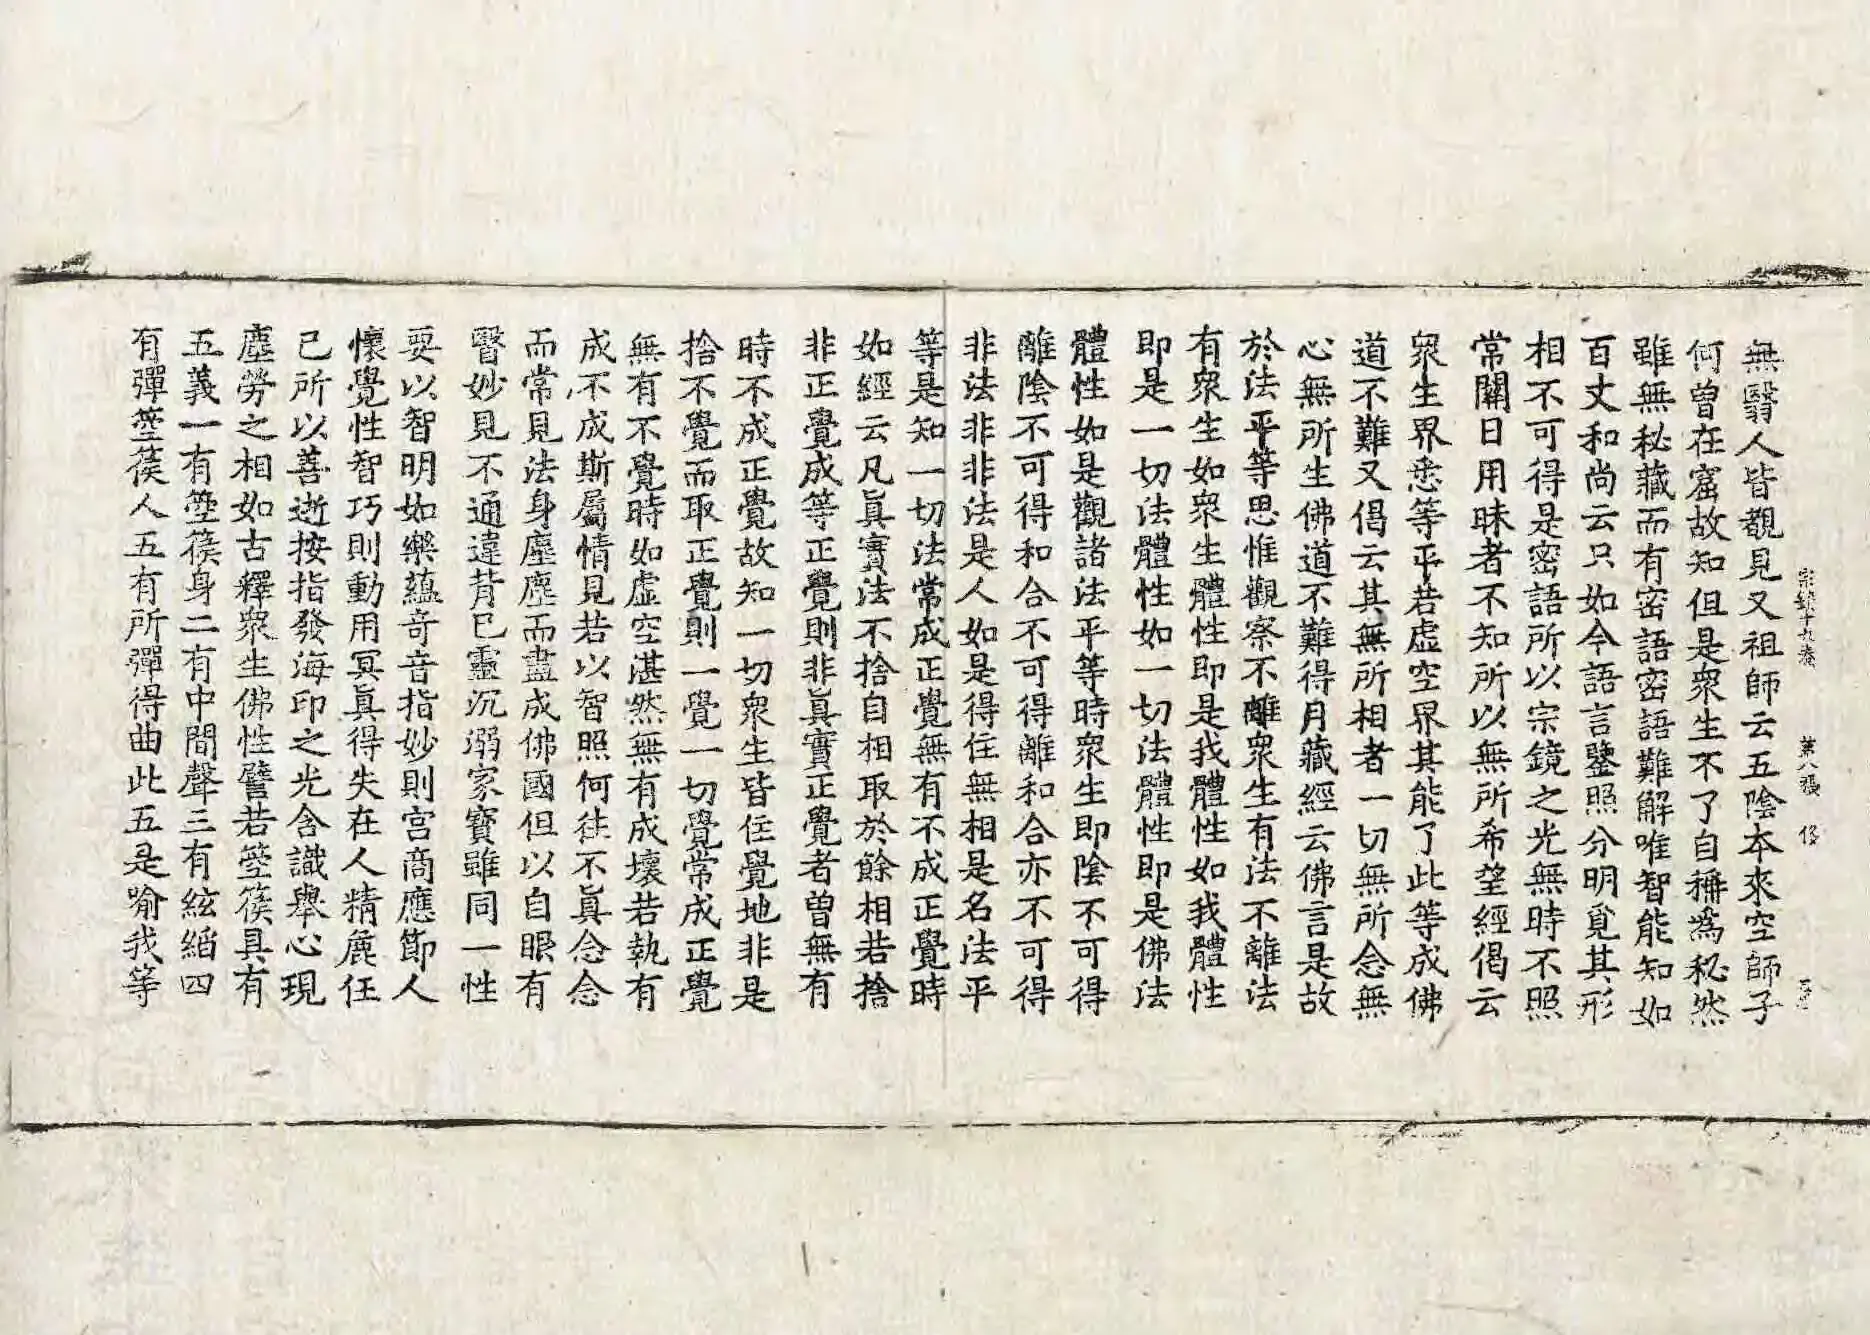 宗鏡十九卷 第八張 俊
無翳人皆覩見又祖師云五陰本來空師子
何曾在窟故知但是衆生不了自稱爲秘然
雖無秘藏而有密語密語難解唯智能知如
百丈和尚云只如今語言鑒照分明覓其形
相不可得是密語所以宗鏡之光無時不照
常關日用昧者不知所以無所希望經偈云
衆生界悉等平若虛空界其能了此等成佛
道不難又偈云其無所相者一切無所念無
心無所生佛道不難得月藏經云佛言是故
於法平等思惟觀察不離衆生有法不離法
有衆生如衆生體性即是我體性如我體性
即是一切法體性如一切法體性即是佛法
體性如是觀諸法平等時衆生即陰不可得
離陰不可得和合不可得離和合亦不可得
非法非非法是人如是得住無相是名法平
等是知一切法常成正覺無有不成正覺時
如經云凡眞實法不捨自相取於餘相若捨
非正覺成等正覺則非眞實正覺者曾無有
時不成正覺故知一切衆生皆住覺地非是
捨不覺而取正覺則一覺一切覺常成正覺
無有不覺時如虛空湛然無有成壞若執有
成不成斯屬情見若以智照何往不眞念念
而常見法身塵塵而盡成佛國但以自眼有
翳妙見不通違背已靈沉溺家寶雖同一性
要以智明如樂蘊奇音指妙則宮商應節人
懷覺性智巧則動用冥眞得失在人精麁任
已所以善逝按指發海印之光含識舉心現
塵勞之相如古釋衆生佛性譬若箜篌具有
五義一有箜篌身二有中間聲三有絃縚四
有彈箜篌人五有所彈得曲此五是喻我等